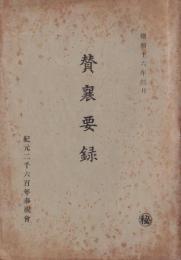 昭和十六年四月
贊襄要録
紀元二千六百年奉祝會
㊙